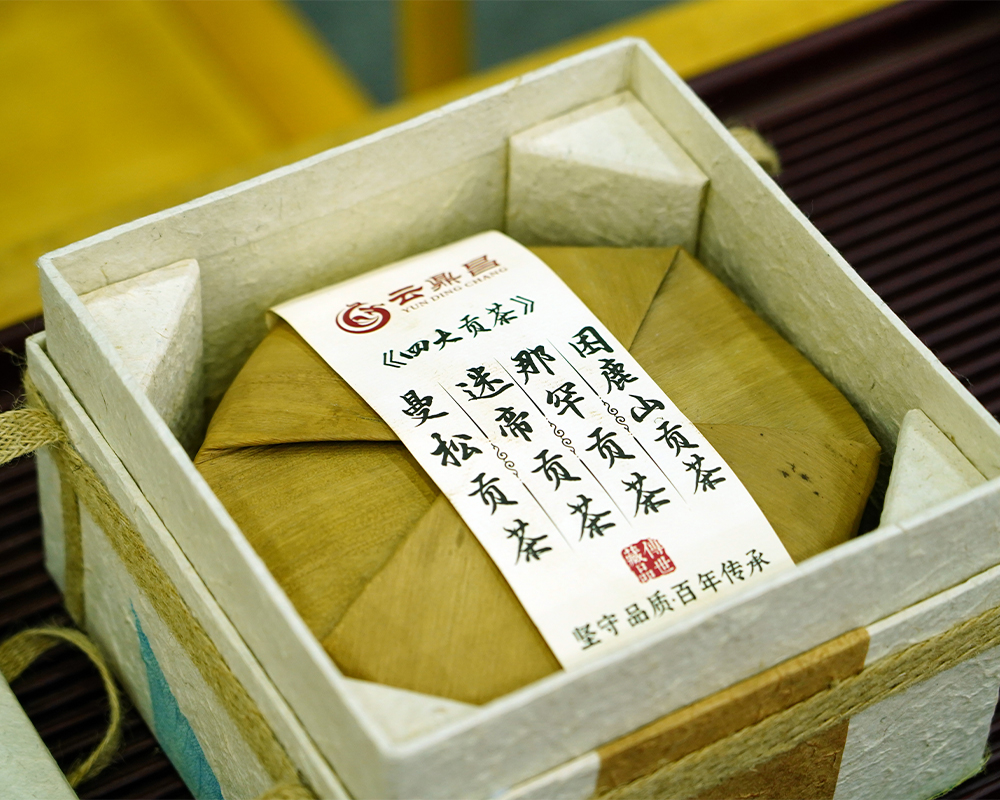 云鼎昌
YUN DING CHANG
《四大贡茶》
困鹿山贡茶
那罕贡茶
迷帝贡茶
曼松贡茶
傳世
藏品
坚守品质·百年传承